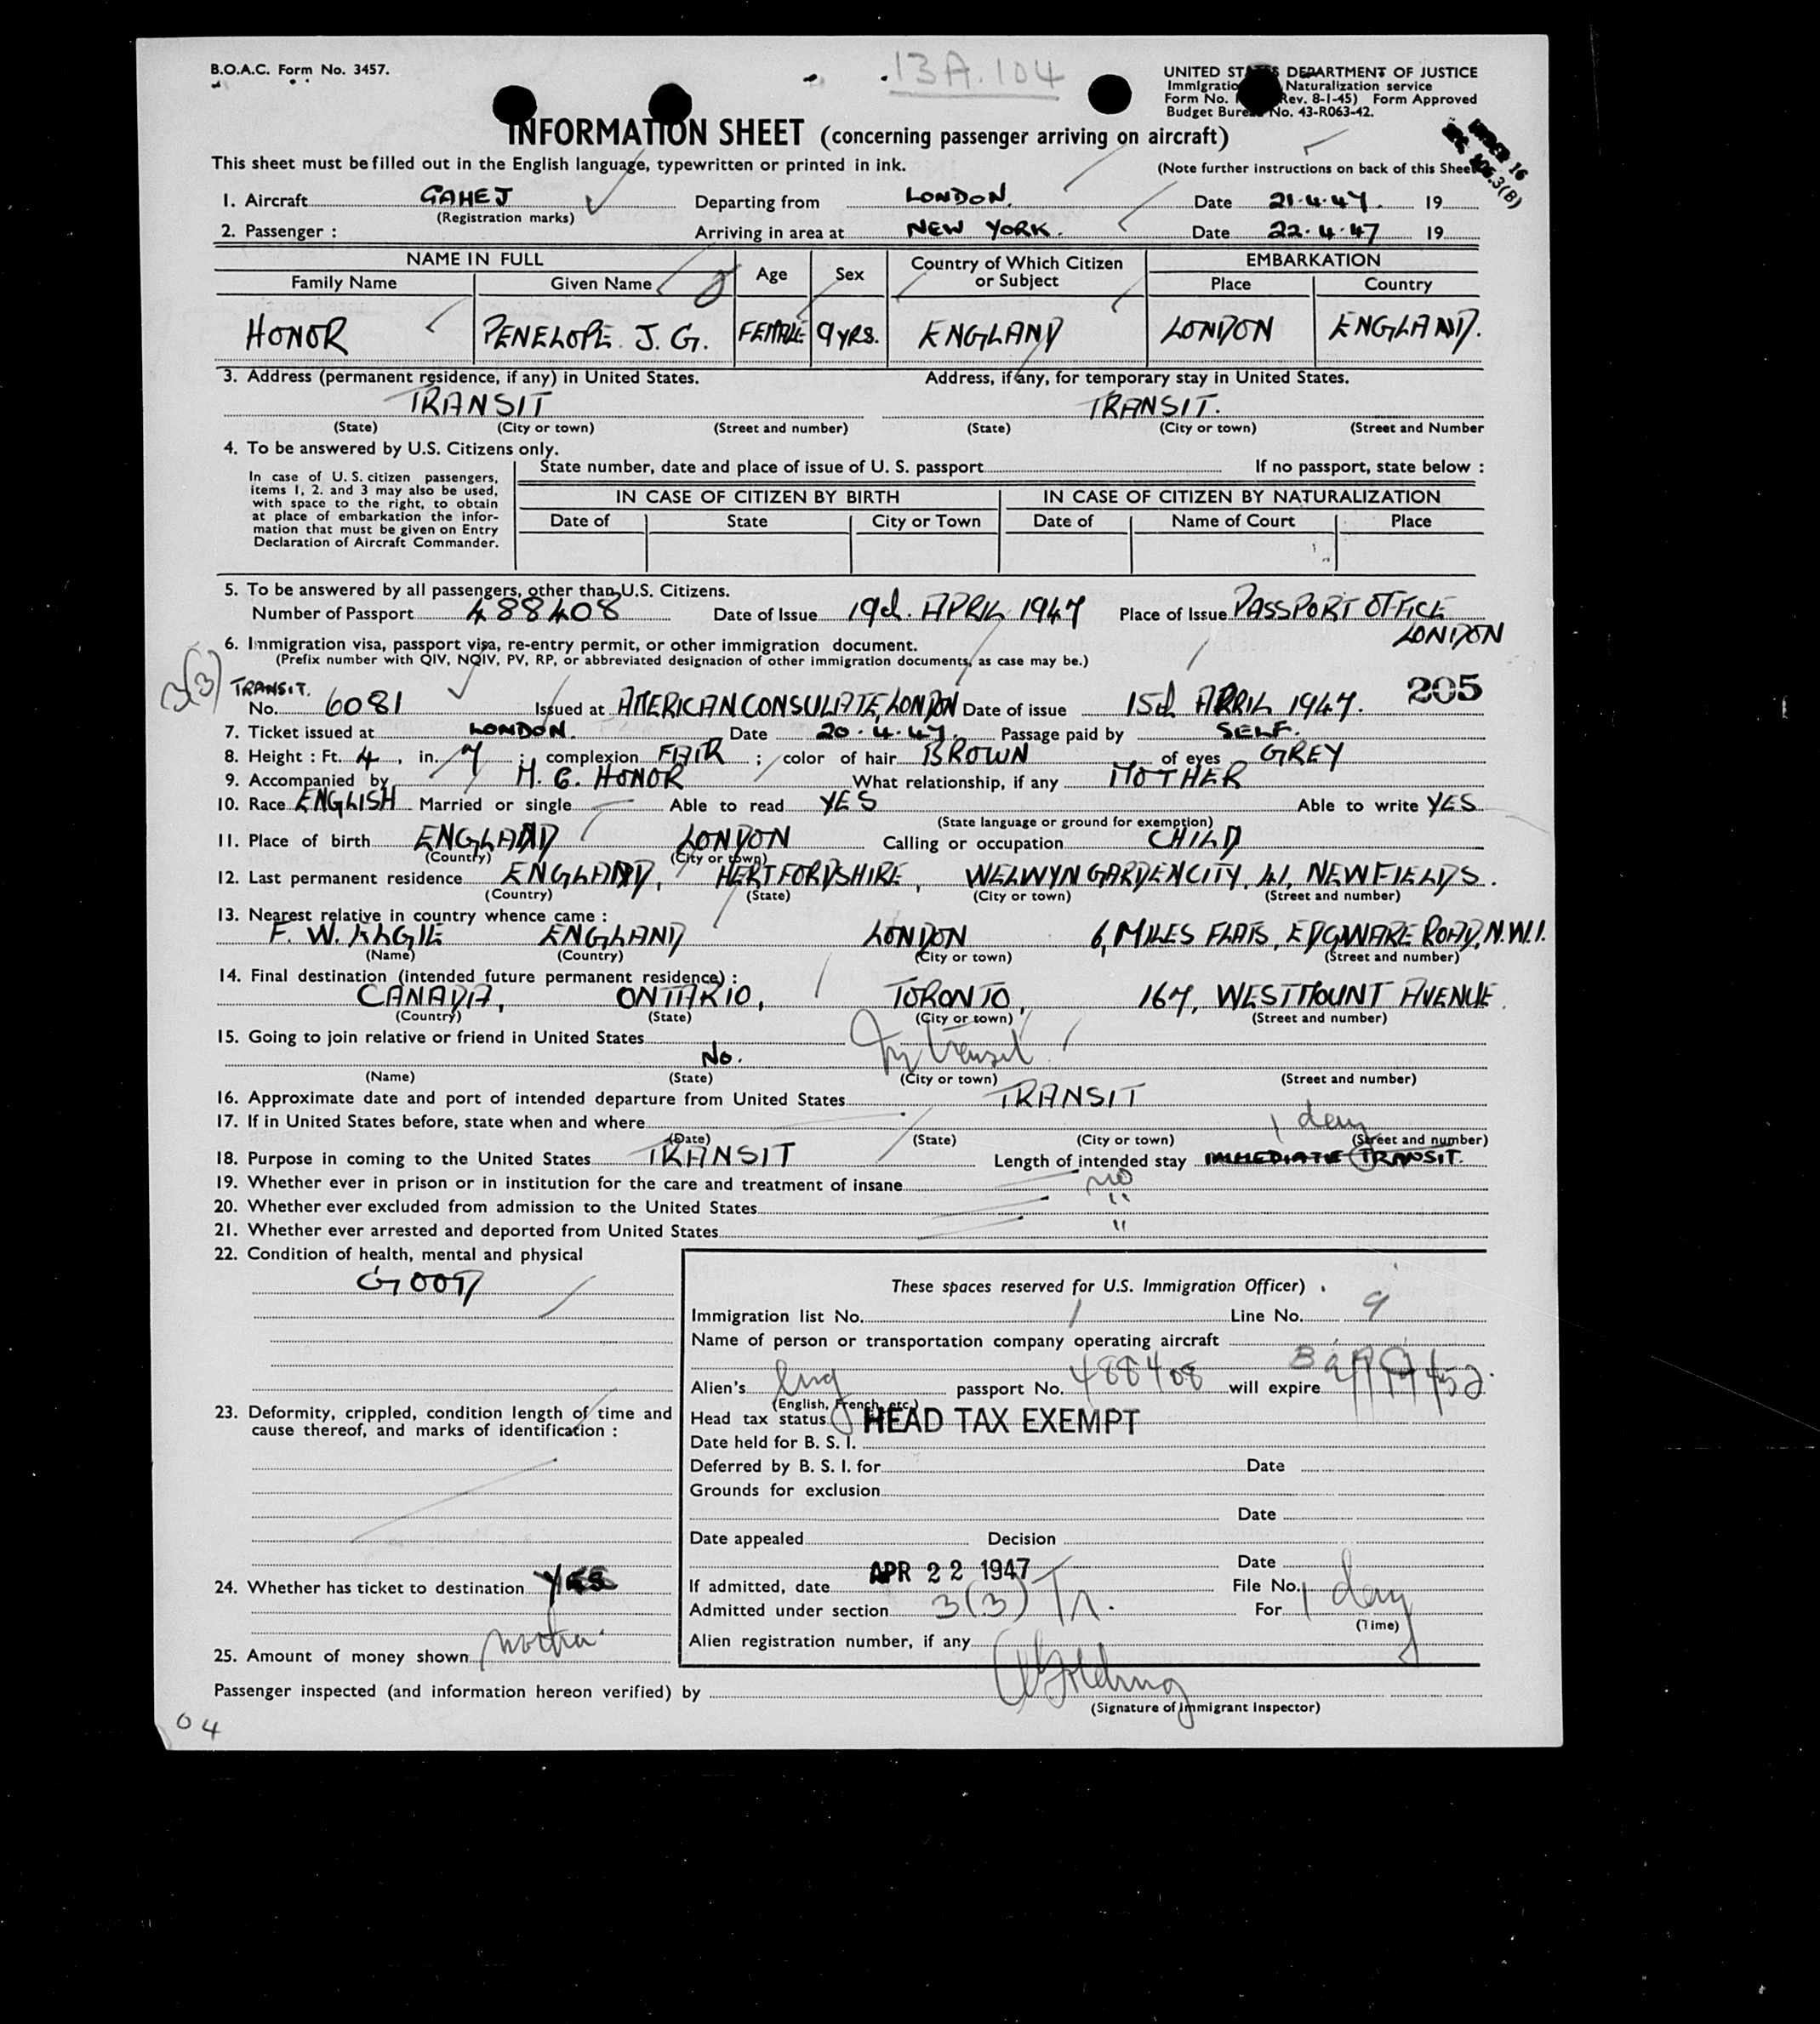 B.O.A.C. Form No. 3457.
13A.104
UNITED STATES DEPARTMENT OF JUSTICE
Immigration Naturalization service
Form No. Rev. 8-1-45) Form Approved
Budget Bureau No. 43-R063-42.
INFORMATION SHEET (concerning passenger arriving on aircraft)
UNDER 16
SEC. 3(B)
This sheet must be filled out in the English language, typewritten or printed in ink. (Note further instructions on back of this Sheet
1. Aircraft GAHEJ Departing from LONDON. Date 21.4.47. 19
(Registration marks)
2. Passenger : Arriving in area at NEW YORK. Date 22.4.47 19
NAME IN FULL Age Sex Country of Which Citizen or Subject EMBARKATION
Family Name Given Name Place Country
HONOR PENELOPE J. G. FEMALE 9 YRS. ENGLAND LONDON ENGLAND.
3. Address (permanent residence, if any) in United States. Address, if any, for temporary stay in United States.
TRANSIT TRANSIT.
(State) (City or town) (Street and number) (State) (City or town) (Street and Number
4. To be answered by U.S. Citizens only.
In case of U.S. citizen passengers, items 1, 2. and 3 may also be used, with space to the right, to obtain at place of embarkation the infor-mation that must be given on Entry Declaration of Aircraft Commander.
State number, date and place of issue of U. S. passport If no passport, state below :
IN CASE OF CITIZEN BY BIRTH IN CASE OF CITIZEN BY NATURALIZATION
Date of State City or Town Date of Name of Court Place
5. To be answered by all passengers, other than U.S. Citizens.
Number of Passport 488408 Date of Issue 19th APRIL 1947 Place of Issue PASSPORT OFFICE
LONDON
6. Immigration visa, passport visa, re-entry permit, or other immigration document.
(Prefix number with QIV, NQIV, PV, RP, or abbreviated designation of other immigration documents, as case may be.)
3(3)
TRANSIT. 205
No. 6081 Issued at AMERICAN CONSULATE, LONDON Date of issue 15th APRIL 1947.
7. Ticket issued at LONDON. Date 20.4.47. Passage paid by SELF.
8. Height : Ft. 4, in. 7 ; complexion FAIR ; color of hair BROWN of eyes GREY
9. Accompanied by M. G. HONOR What relationship, if any MOTHER
10. Race ENGLISH Married or single Able to read YES Able to write YES
(State language or ground for exemption)
11. Place of birth ENGLAND LONDON Calling or occupation CHILD
(Country) (City or town)
12. Last permanent residence ENGLAND, HERTFORDSHIRE, WELWYN GARDEN CITY, 41, NEWFIELDS.
(Country) (State) (City or town) (Street and number)
13. Nearest relative in country whence came :
F. W. ALGIE ENGLAND LONDON 6, MILES FLATS, EDGWARE ROAD, N.W.1.
(Name) (Country) (City or town) (Street and number)
14. Final destination (intended future permanent residence) :
CANADA, ONTARIO, TORONTO, 167, WESTMOUNT AVENUE.
(Country) (State) (City or town) (Street and number)
15. Going to join relative or friend in United States
No. In transit
(Name) (State) (City or town) (Street and number)
16. Approximate date and port of intended departure from United States TRANSIT
17. If in United States before, state when and where
(Date) (State) (City or town) (Street and number)
1 day
18. Purpose in coming to the United States TRANSIT Length of intended stay IMMEDIATE TRANSIT.
19. Whether ever in prison or in institution for the care and treatment of insane no
20. Whether ever excluded from admission to the United States "
21. Whether ever arrested and deported from United States "
22. Condition of health, mental and physical
GOOD
These spaces reserved for U.S. Immigration Officer)
Immigration list No. 1 Line No. 9
Name of person or transportation company operating aircraft
Alien's Eng passport No. 488408 will expire
(English, French, etc.)
23. Deformity, crippled, condition length of time and cause thereof, and marks of identification :
Head tax status HEAD TAX EXEMPT
Date held for B. S. I.
Deferred by B. S. I. for Date
Grounds for exclusion
Date
Date appealed Decision
Date
24. Whether has ticket to destination YES
If admitted, date APR 22 1947 File No.
Admitted under section 3(3) Tr. For 1 day
(Time)
25. Amount of money shown
Alien registration number, if any
Passenger inspected (and information hereon verified) by Golding
(Signature of Immigrant Inspector)
04